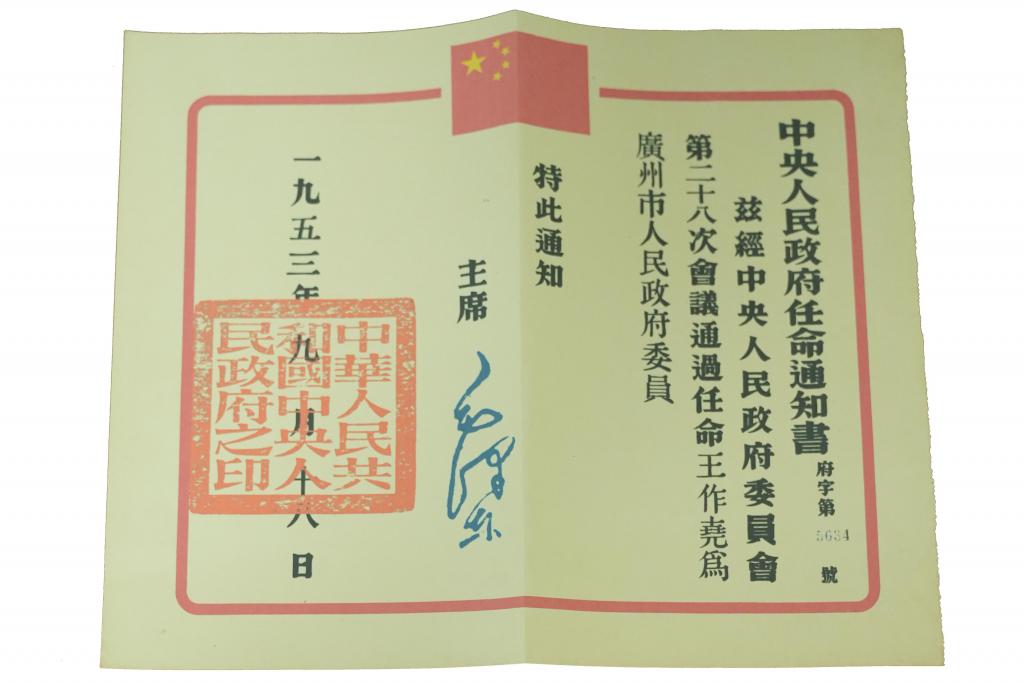 中央人民政府任命通知書
府字第5634號
茲經中央人民政府委員會
第二十八次會議通過任命王作堯爲
廣州市人民政府委員
特此通知
主席 毛澤东
一九五三年九月十八日
中華人民共
和國中央人
民政府之印